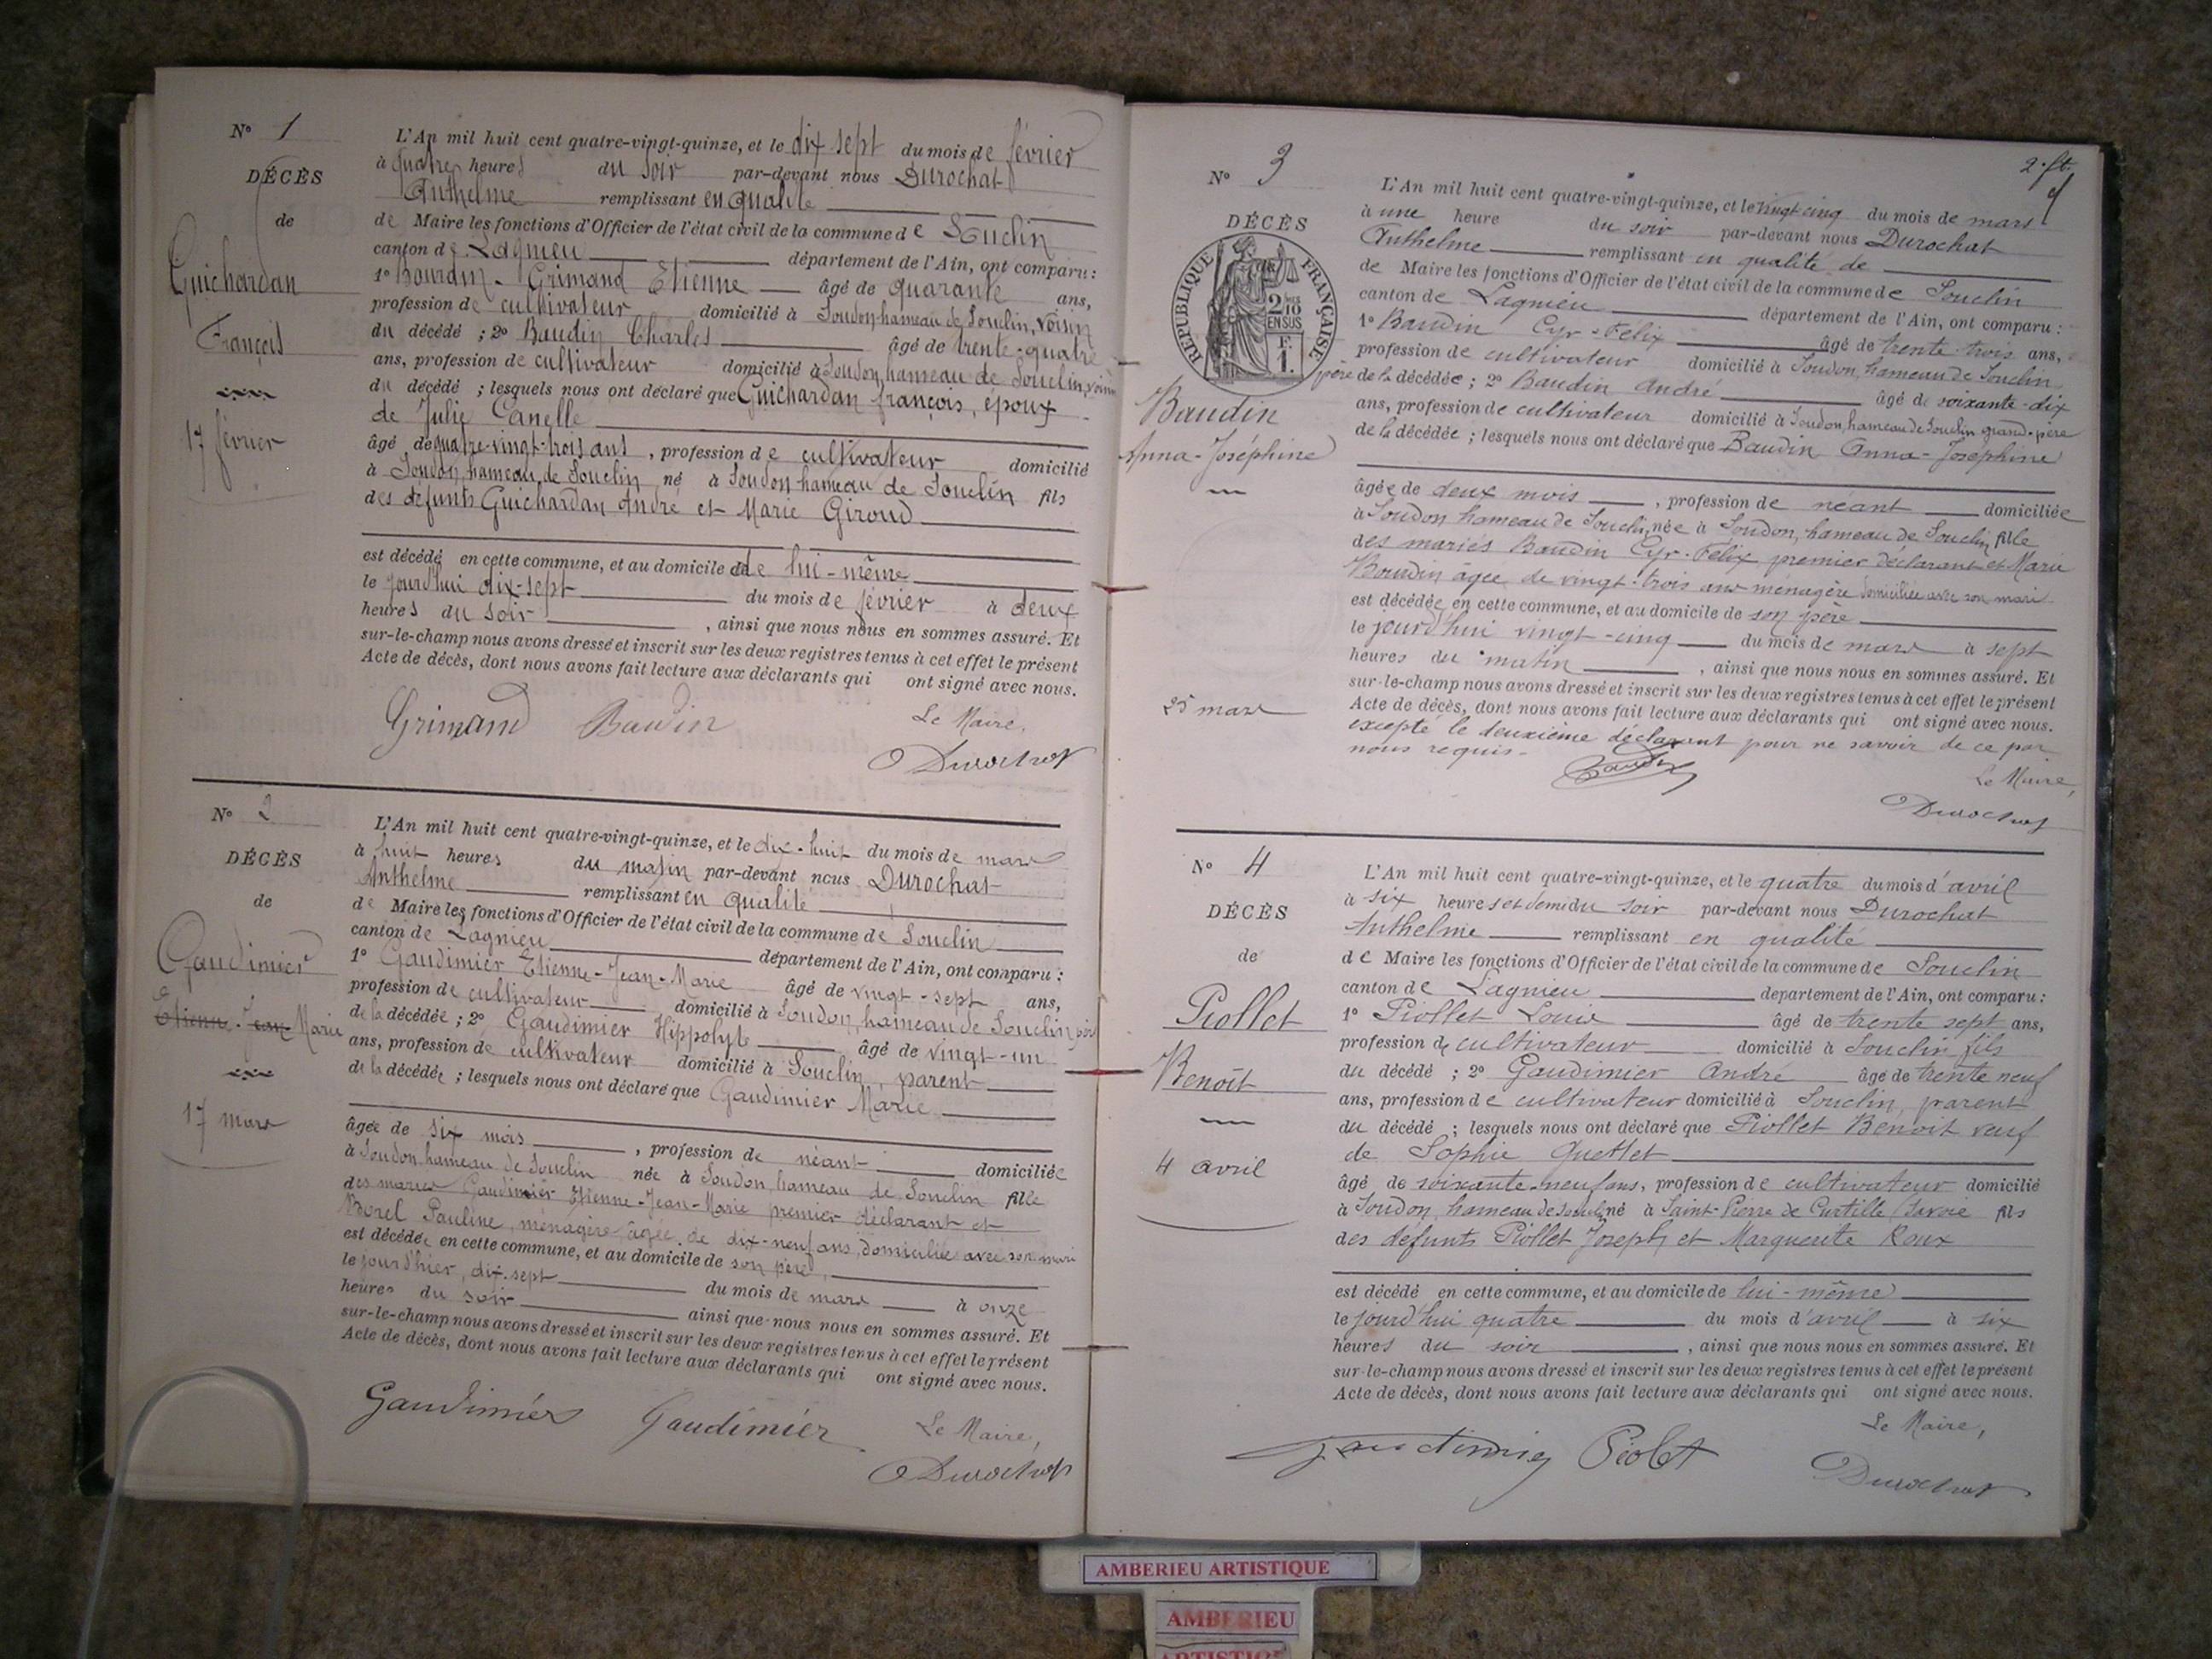 N° 1
DÉCÈS
de
Guichardan
François
17 février
L'An mil huit cent quatre-vingt-quinze, et le dix-sept du mois de février
à quatre heures du soir par-devant nous Durochat
Anthelme remplissant en qualité
de Maire les fonctions d'Officier de l'état civil de la commune de Souclin
canton de Lagnieu département de l'Ain, ont comparu :
1° Bourdin-Grimand Etienne âgé de quarante ans,
profession de cultivateur domicilié à Soudon, hameau de Souclin, voisin
du décédé ; 2° Baudin Charles âgé de trente-quatre
ans, profession de cultivateur domicilié à Soudon, hameau de Souclin, voisin
du décédé ; lesquels nous ont déclaré que Guichardan françois, époux
de Julie Canelle
âgé de quatre-vingt-trois ans, profession de cultivateur domicilié
à Soudon, hameau de Souclin né à Soudon hameau de Souclin fils
des défunts Guichardan André et Marie Giroud
est décédé en cette commune, et au domicile de lui-même
le jourd'hui dix-sept du mois de février à deux
heures du soir, ainsi que nous nous en sommes assuré. Et
sur-le-champ nous avons dressé et inscrit sur les deux registres tenus à cet effet le présent
Acte de décès, dont nous avons fait lecture aux déclarants qui ont signé avec nous.
Grimand Baudin Le Maire,
Durochat
N° 2
DÉCÈS
de
Gaudimier
Etienne-Jean-Marie
17 mars
L'An mil huit cent quatre-vingt-quinze, et le dix-huit du mois de mars
à huit heures du matin par-devant nous Durochat
Anthelme remplissant en qualité
de Maire les fonctions d'Officier de l'état civil de la commune de Souclin
canton de Lagnieu département de l'Ain, ont comparu :
1° Gaudimier Etienne-Jean-Marie âgé de vingt-sept ans,
profession de cultivateur domicilié à Soudon, hameau de Souclin, père
de la décédée ; 2° Gaudimier Hippolyte âgé de vingt-un
ans, profession de cultivateur domicilié à Souclin, parent
de la décédée ; lesquels nous ont déclaré que Gaudimier Marie
âgée de six mois, profession de néant domiciliée
à Soudon hameau de Souclin née à Soudon, hameau de Souclin fille
des mariés Gaudimier Etienne-Jean-Marie premier déclarant et
Borel Pauline, ménagère âgée de dix-neuf ans, domiciliée avec son mari
est décédée en cette commune, et au domicile de son père,
le jour d'hier, dix-sept du mois de mars à onze
heures du soir ainsi que nous nous en sommes assuré. Et
sur-le-champ nous avons dressé et inscrit sur les deux registres tenus à cet effet le présent
Acte de décès, dont nous avons fait lecture aux déclarants qui ont signé avec nous.
Gaudimier Gaudimier Le Maire,
Durochat
2.ft.
N° 3
DÉCÈS
RÉPUBLIQUE FRANÇAISE
2/10 EN SUS
F.
1.
Baudin
Anna-Joséphine
25 mars
L'An mil huit cent quatre-vingt-quinze, et le vingt cinq du mois de mars
à une heure du soir par-devant nous Durochat
Anthelme remplissant en qualité de
de Maire les fonctions d'Officier de l'état civil de la commune de Souclin
canton de Lagnieu département de l'Ain, ont comparu :
1° Baudin Cyr-Félix âgé de trente-trois ans,
profession de cultivateur domicilié à Soudon, hameau de Souclin
père de la décédée ; 2° Baudin André âgé de soixante-dix
ans, profession de cultivateur domicilié à Soudon, hameau de Souclin grand-père
de la décédée ; lesquels nous ont déclaré que Baudin Anna-Joséphine
âgée de deux mois, profession de néant domiciliée
à Soudon hameau de Souclin, née à Soudon, hameau de Souclin fille
des mariés Baudin Cyr-Félix premier déclarant et Marie
Bourdin âgée de vingt-trois ans ménagère domiciliée avec son mari
est décédée en cette commune, et au domicile de son père
le jourd'hui vingt-cinq du mois de mars à sept
heures du matin, ainsi que nous nous en sommes assuré. Et
sur-le-champ nous avons dressé et inscrit sur les deux registres tenus à cet effet le présent
Acte de décès, dont nous avons fait lecture aux déclarants qui ont signé avec nous.
excepté le deuxième déclarant pour ne savoir de ce par
nous requis.
Baudin Le Maire,
Durochat
N° 4
DÉCÈS
de
Piollet
Benoît
4 avril
L'An mil huit cent quatre-vingt-quinze, et le quatre du mois d'avril
à six heures et demi du soir par-devant nous Durochat
Anthelme remplissant en qualité
de Maire les fonctions d'Officier de l'état civil de la commune de Souclin
canton de Lagnieu département de l'Ain, ont comparu :
1° Piollet Louis âgé de trente sept ans,
profession de cultivateur domicilié à Souclin fils
du décédé ; 2° Gaudimier André âgé de trente neuf
ans, profession de cultivateur domicilié à Souclin, parent
du décédé ; lesquels nous ont déclaré que Piollet Benoît veuf
de Sophie Quettet
âgé de soixante-neuf ans, profession de cultivateur domicilié
à Soudon, hameau de Souclin né à Saint-Pierre de Curtille (Savoie fils
des défunts Piollet Joseph et Marguerite Roux
est décédé en cette commune, et au domicile de lui-même
le jourd'hui quatre du mois d'avril à six
heures du soir, ainsi que nous nous en sommes assuré. Et
sur-le-champ nous avons dressé et inscrit sur les deux registres tenus à cet effet le présent
Acte de décès, dont nous avons fait lecture aux déclarants qui ont signé avec nous.
Le Maire,
gaudimier Piolet Durochat
AMBERIEU ARTISTIQUE
AMBERIEU
ARTISTIQUE